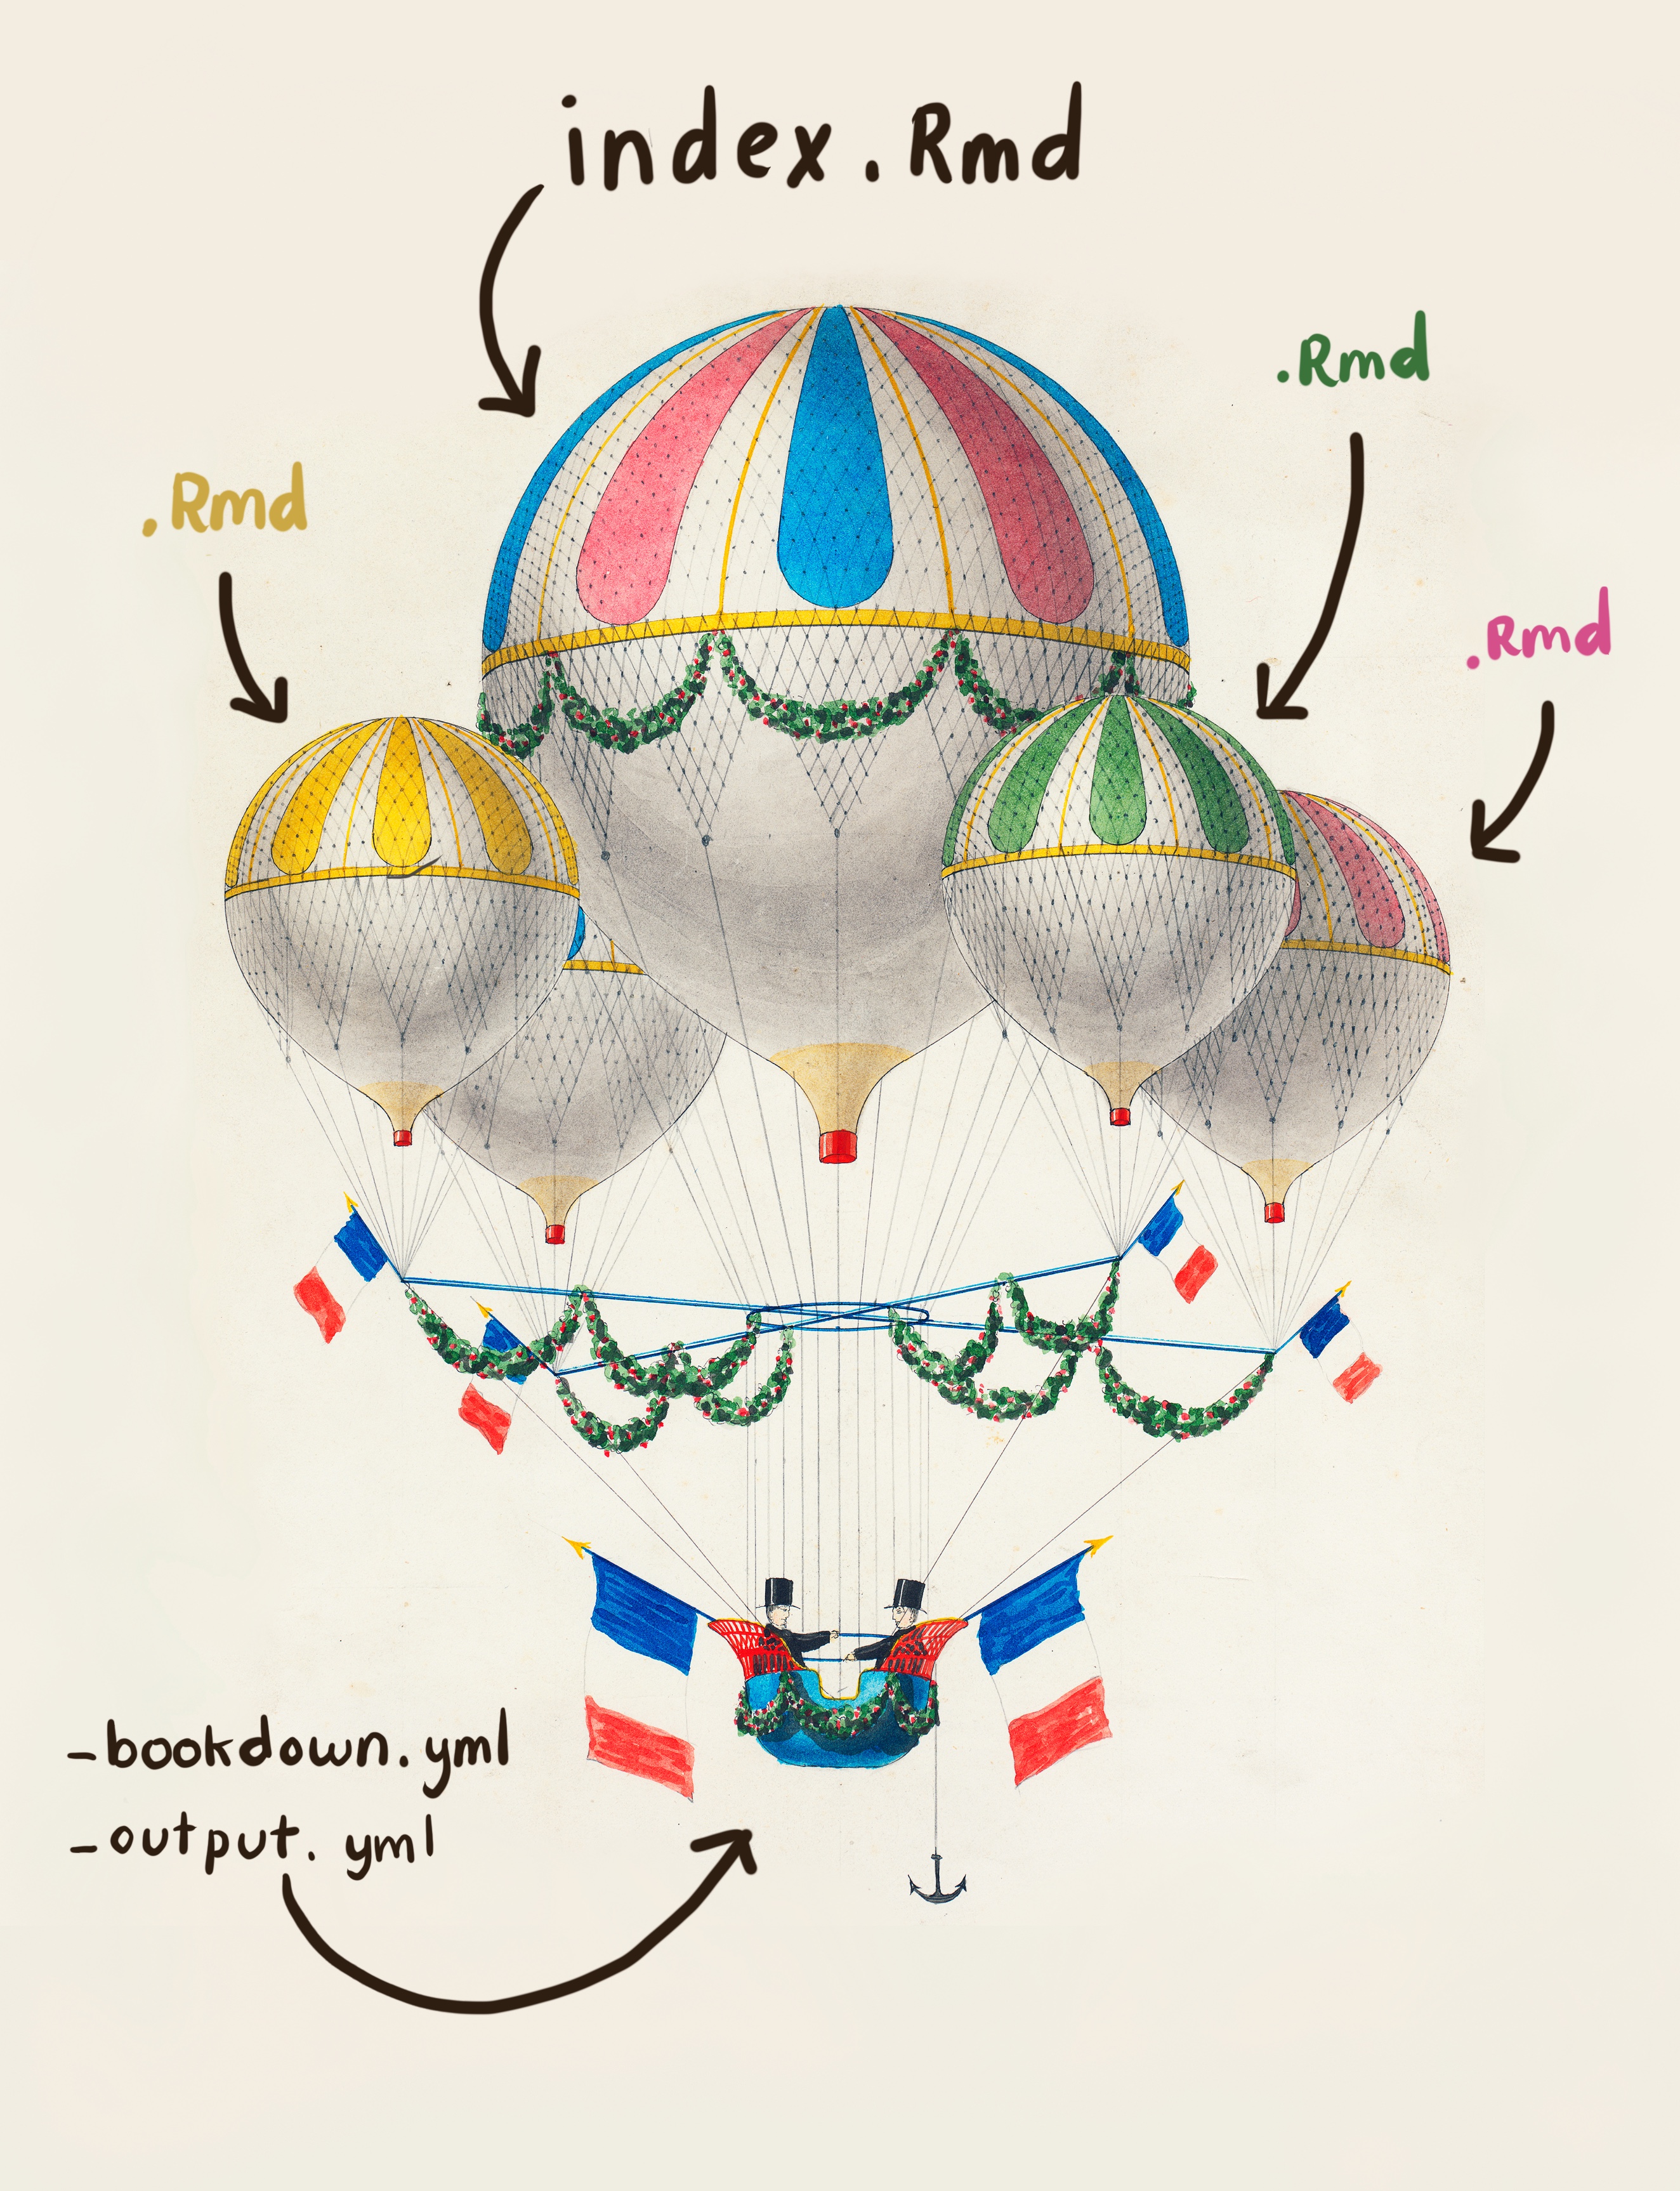 index.Rmd
.Rmd
.Rmd
.Rmd
_bookdown.yml
_output.yml